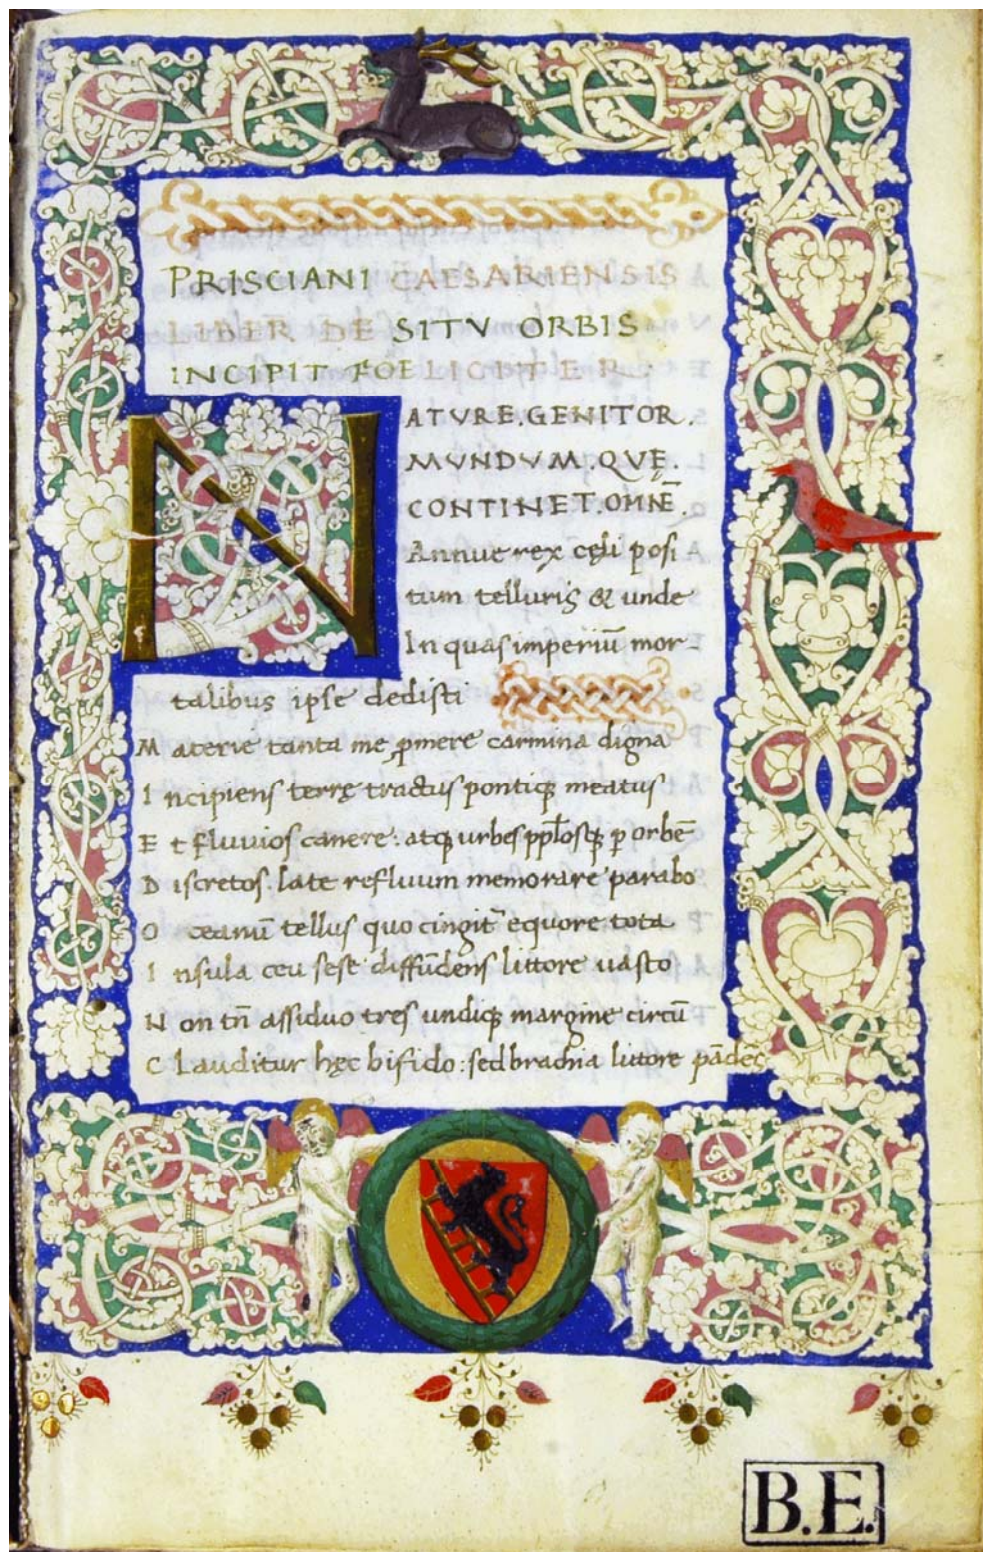 PRISCIANI CAESARIENSIS
LIBER DE SITV ORBIS
INCIPIT FOELICITER:
NATVRE.GENITOR.
MVNDVM.QVĘ.
CONTINET.OMNĒ.
Annue rex cęli posi
tum telluris & unde
In quas imperiū mor-
talibus ipse dedisti
Materie tanta me ꝓmere carmina digna
Incipiens terrę tractus pontiqꝫ meatus
Et fluuios canere. atqꝫ urbes pplosqꝫ ꝑ orbē
Discretos. late refluum memorare parabo
Oceanū tellus quo cingit equore tota
Insula ceu sese diffūdens littore uasto
Non tn̄ assiduo tres undiqꝫ margine circū
Clauditur hęc bifido: sed brachia littore pādēs
B.E.